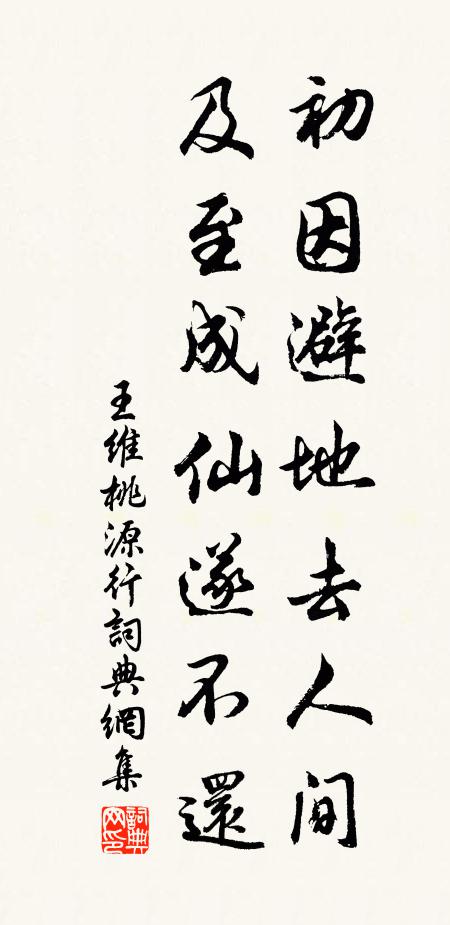 初因避地去人间
及至成仙遂不還
王維桃源行詞典網集
詞典网印